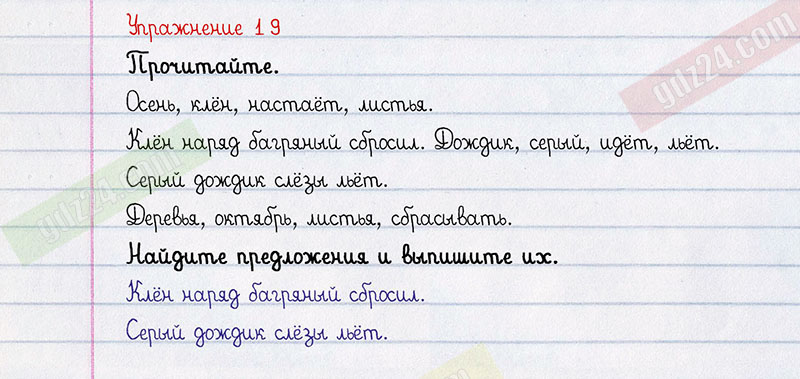 Упражнение 19
Прочитайте.
Осень, клён, настаёт, листья.
Клён наряд багряный сбросил. Дождик, серый, идёт, льёт.
Серый дождик слёзы льёт.
Деревья, октябрь, листья, сбрасывать.
Найдите предложения и выпишите их.
Клён наряд багряный сбросил.
Серый дождик слёзы льёт.
gdz24.com
gdz24.com